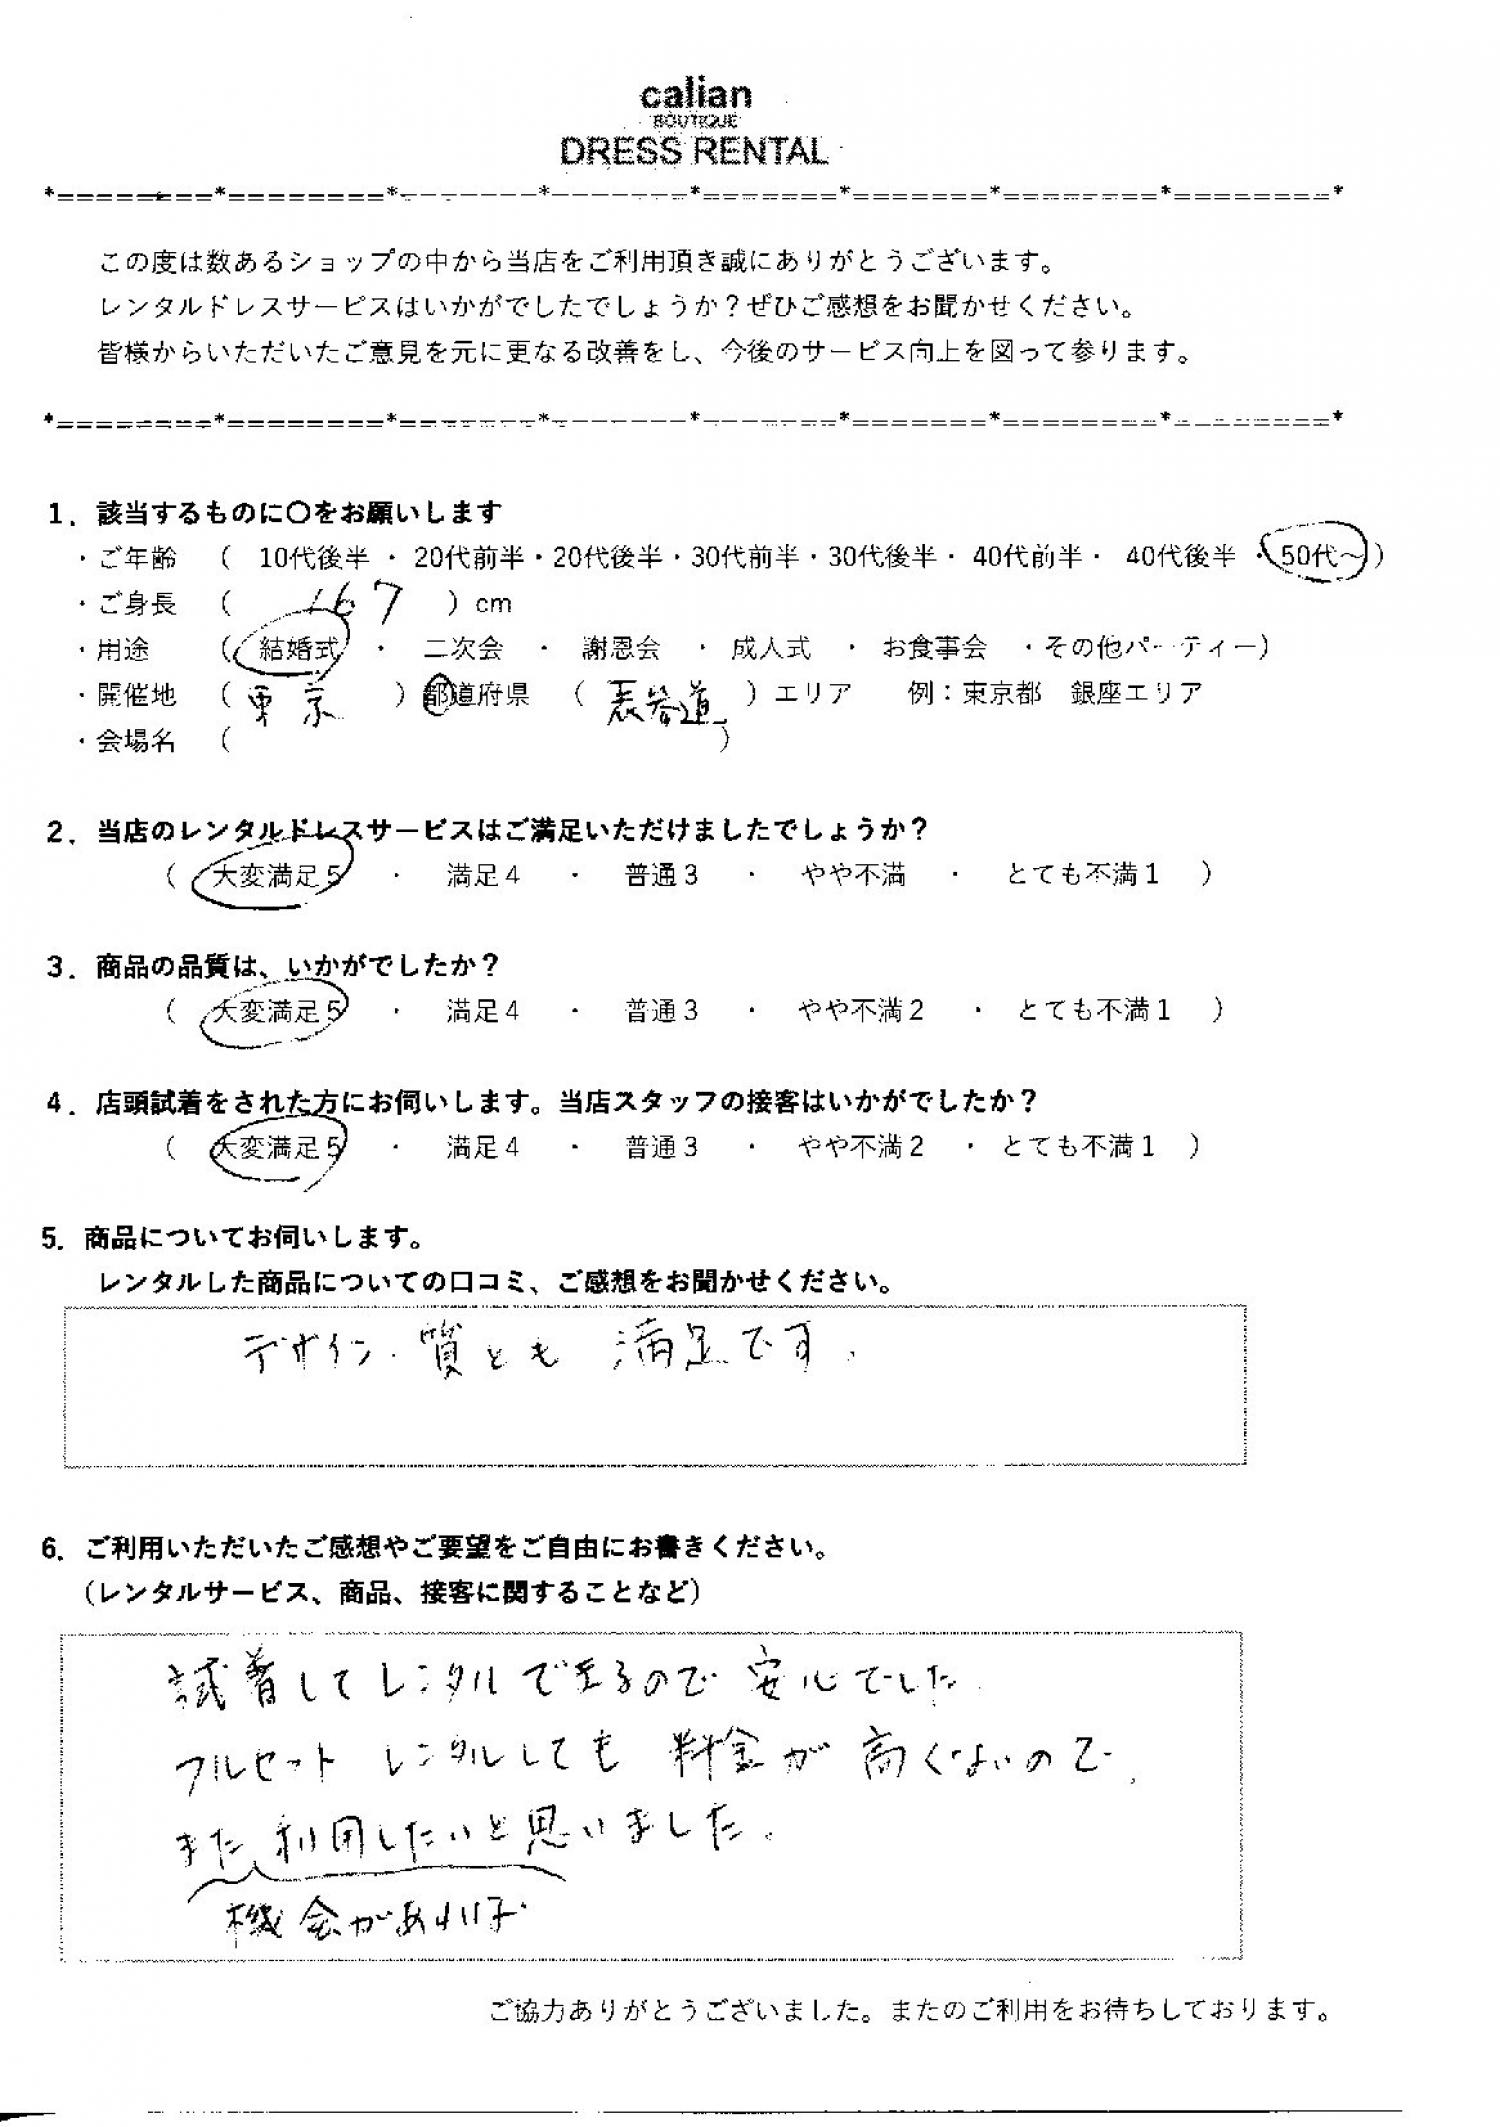 calian
BOUTIQUE
DRESS RENTAL
*========*========*-------*-------*=======*=======*========*========*
この度は数あるショップの中から当店をご利用頂き誠にありがとうございます。
レンタルドレスサービスはいかがでしたでしょうか？ぜひご感想をお聞かせください。
皆様からいただいたご意見を元に更なる改善をし、今後のサービス向上を図って参ります。
*========*========*=======*-------*-------*=======*========*========*
1．該当するものに〇をお願いします
・ご年齢 （ 10代後半 ・ 20代前半・20代後半・30代前半・30代後半・ 40代前半・ 40代後半 ・50代～）
・ご身長 （ 167 ）cm
・用途 （ 結婚式 ・ 二次会 ・ 謝恩会 ・ 成人式 ・ お食事会 ・その他パーティー）
・開催地 （ 東京 ）都道府県 （ 表参道 ）エリア 例：東京都 銀座エリア
・会場名 （ ）
2．当店のレンタルドレスサービスはご満足いただけましたでしょうか？
（ 大変満足５ ・ 満足４ ・ 普通３ ・ やや不満 ・ とても不満１ ）
3．商品の品質は、いかがでしたか？
（ 大変満足５ ・ 満足４ ・ 普通３ ・ やや不満２ ・ とても不満１ ）
4．店頭試着をされた方にお伺いします。当店スタッフの接客はいかがでしたか？
（ 大変満足５ ・ 満足４ ・ 普通３ ・ やや不満２ ・ とても不満１ ）
5．商品についてお伺いします。
レンタルした商品についての口コミ、ご感想をお聞かせください。
デザイン・質とも 満足です．
6．ご利用いただいたご感想やご要望をご自由にお書きください。
（レンタルサービス、商品、接客に関することなど）
試着してレンタルできるので 安心でした．
フルセット レンタルしても 料金が 高くないので、
また 利用したいと思いました．
機会があれば
ご協力ありがとうございました。またのご利用をお待ちしております。